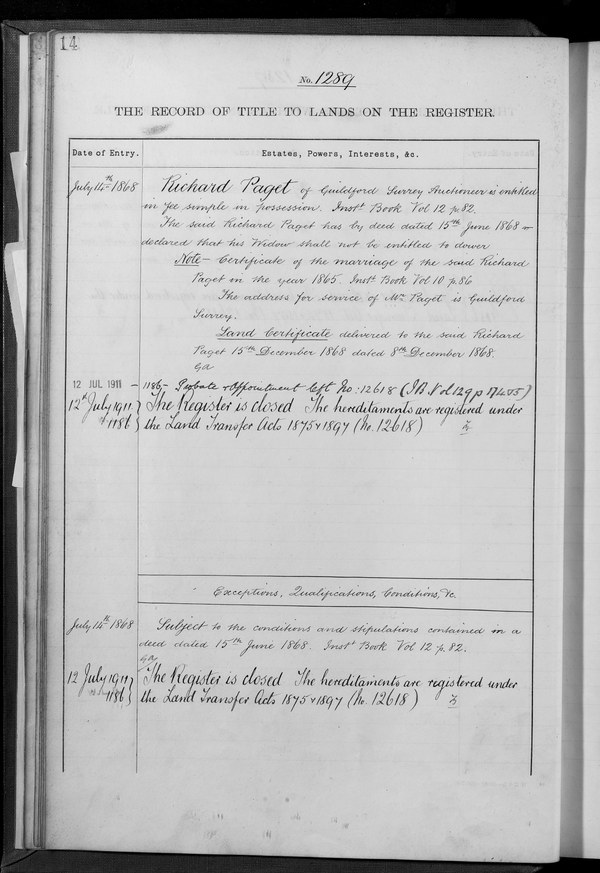 14
No. 1289
THE RECORD OF TITLE TO LANDS ON THE REGISTER.
Date of Entry.
Estates, Powers, Interests, &c.
July 14th 1868
Richard Paget of Guildford Surrey Auctioneer is entitled
in fee simple in possession. Inst.t Book Vol 12 p. 82.
The said Richard Paget has by deed dated 15th June 1868
declared that his Widow shall not be entitled to dower
Note - Certificate of the marriage of the said Richard
Paget in the year 1865. Inst.t Book Vol 10 p. 86
The address for service of Mr Paget is Guildford
Surrey.
Land Certificate delivered to the said Richard
Paget 15th December 1868 dated 8th December 1868.
Ga
12 JUL 1911 - 1186 - Probate & Appointment Cft No: 12618 (I.B. Vol 129 p
12th July 1911
1186
The Register is closed The hereditaments are registered under
the Land Transfer Acts 1875 & 1897 (No. 12618)
Exceptions, Qualifications, Conditions, &c.
July 14th 1868
Subject to the conditions and stipulations contained in a
deed dated 15th June 1868. Inst.t Book Vol 12 p. 82.
Ga
12 July 1911
1186
The Register is closed The hereditaments are registered under
the Land Transfer Acts 1875 & 1897 (No. 12618)